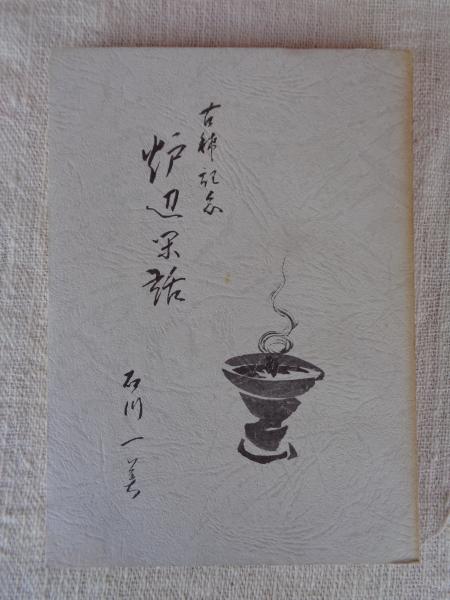 古稀記念
炉辺閑話
石川一美